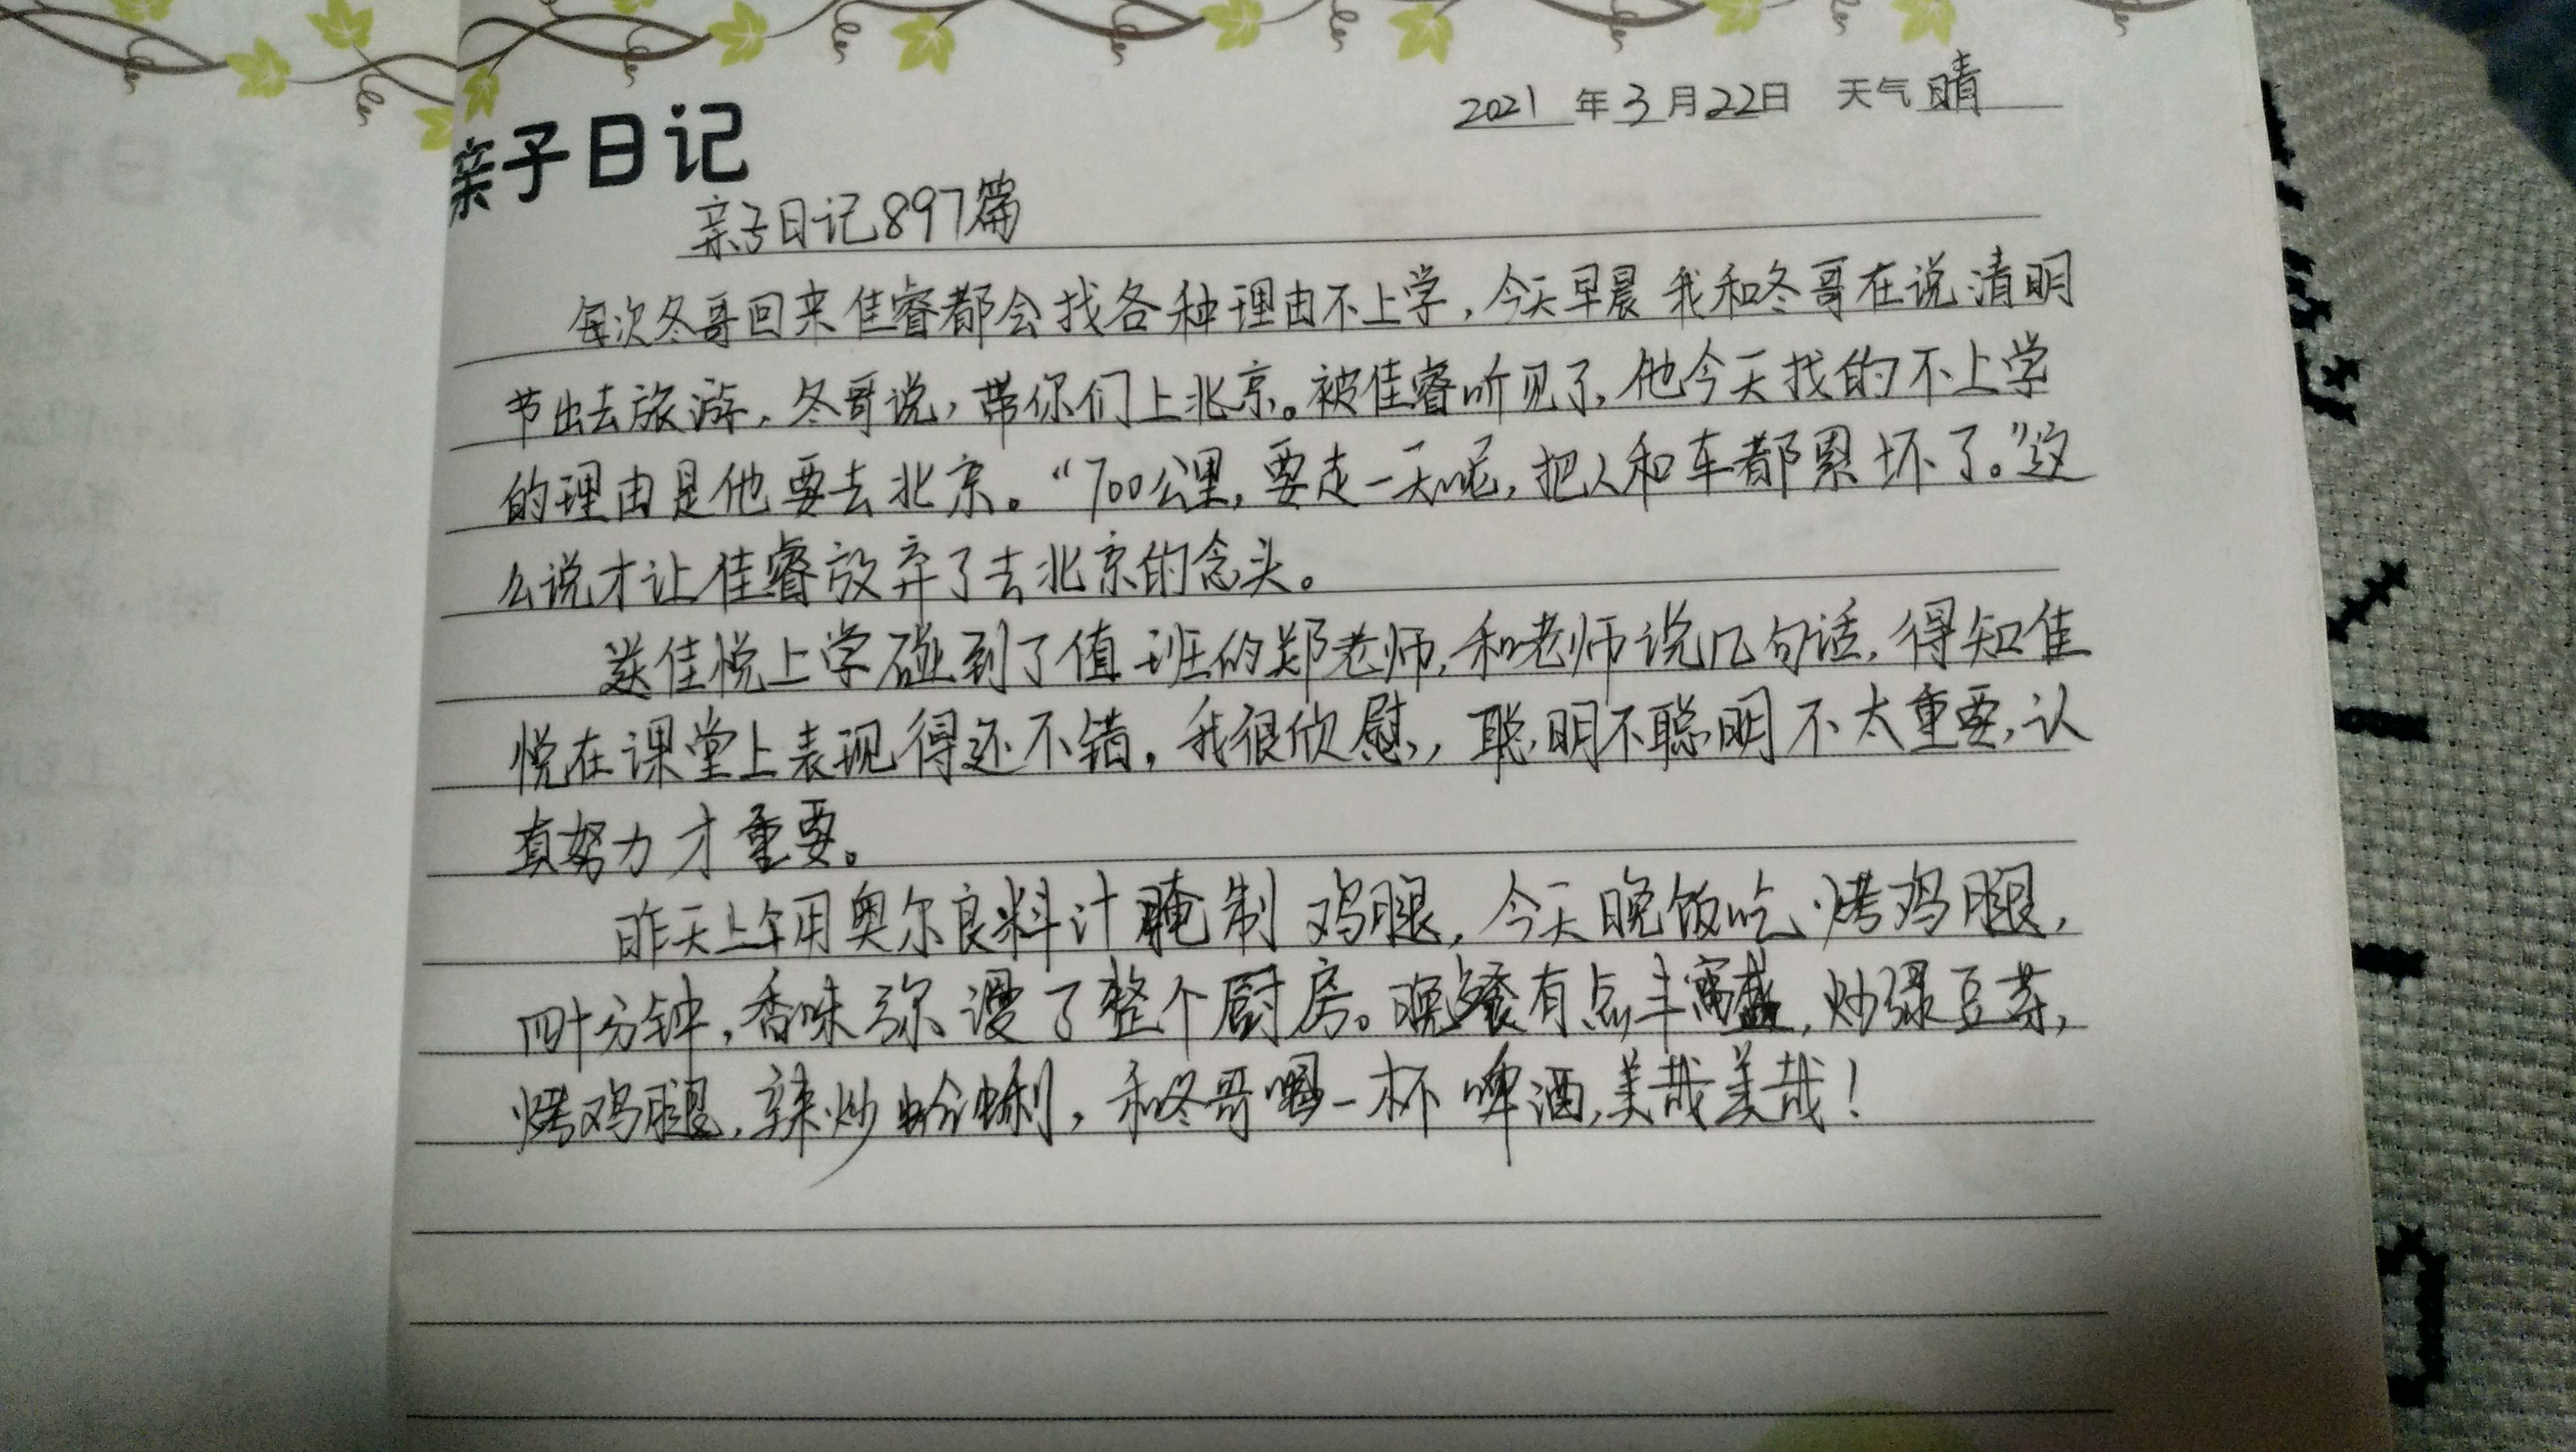 2021 年 3 月 22 日 天气 晴
亲子日记
亲子日记897篇
每次冬哥回来佳睿都会找各种理由不上学,今天早晨我和冬哥在说清明
节出去旅游,冬哥说,带你们上北京。被佳睿听见了,他今天找的不上学
的理由是他要去北京。“700公里,要走一天呢,把人和车都累坏了。”这
么说才让佳睿放弃了去北京的念头。
送佳悦上学碰到了值班的郑老师,和老师说几句话,得知佳
悦在课堂上表现得还不错,我很欣慰,聪明不聪明不太重要,认
真努力才重要。
昨天上午用奥尔良料汁腌制鸡腿,今天晚饭吃烤鸡腿,
四十分钟,香味弥漫了整个厨房。晚餐有点丰盛,炒绿豆芽,
烤鸡腿,辣炒蛤蜊,和冬哥喝一杯啤酒,美哉美哉!